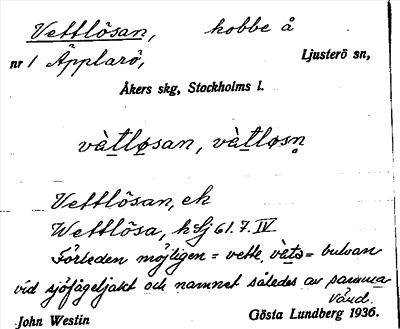 Vettlösan, kobbe å
nr 1 Äpplarö, Ljusterö sn,
Åkers skg, Stockholms l.
vàtløsan, vàtløsn̥
Vettlösan, ek
Wettlösa, hslj 61.7.IV
Förleden möjligen = vette, vàtə = bulvan
vid sjöfågeljakt och namnet således av samma
vänd.
John Westin Gösta Lundberg 1936.